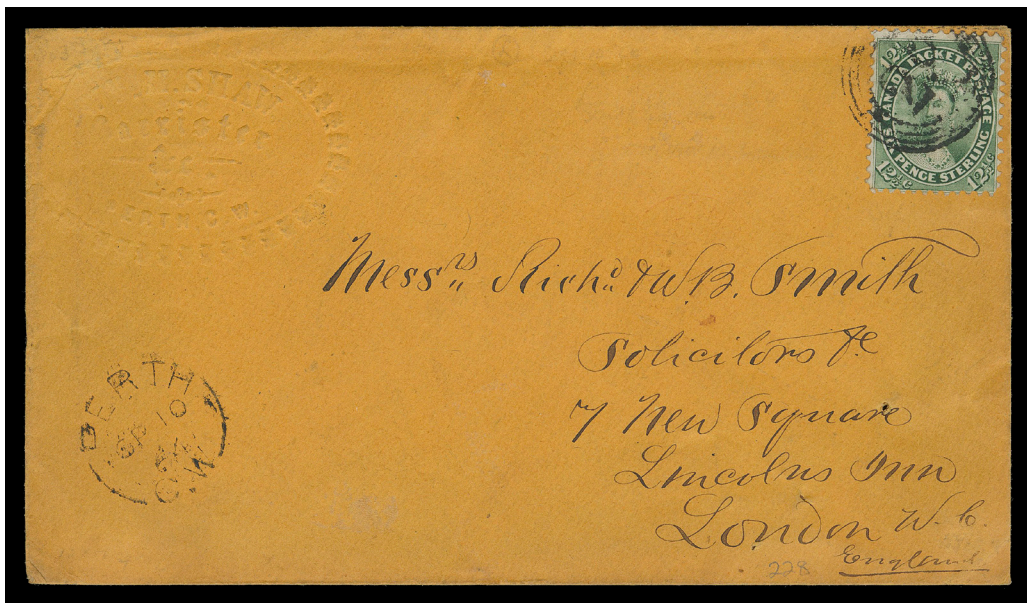 SHAW
Barrister
&c.
C.W.
12½c
CANADA PACKET POSTAGE
SIX PENCE STERLING
12½c 12½c
Messrs Richd & W.B. Smith
Solicitors &c
7 New Square
Lincolns Inn
London W.C.
England
228
PERTH
SP 10
C.W.